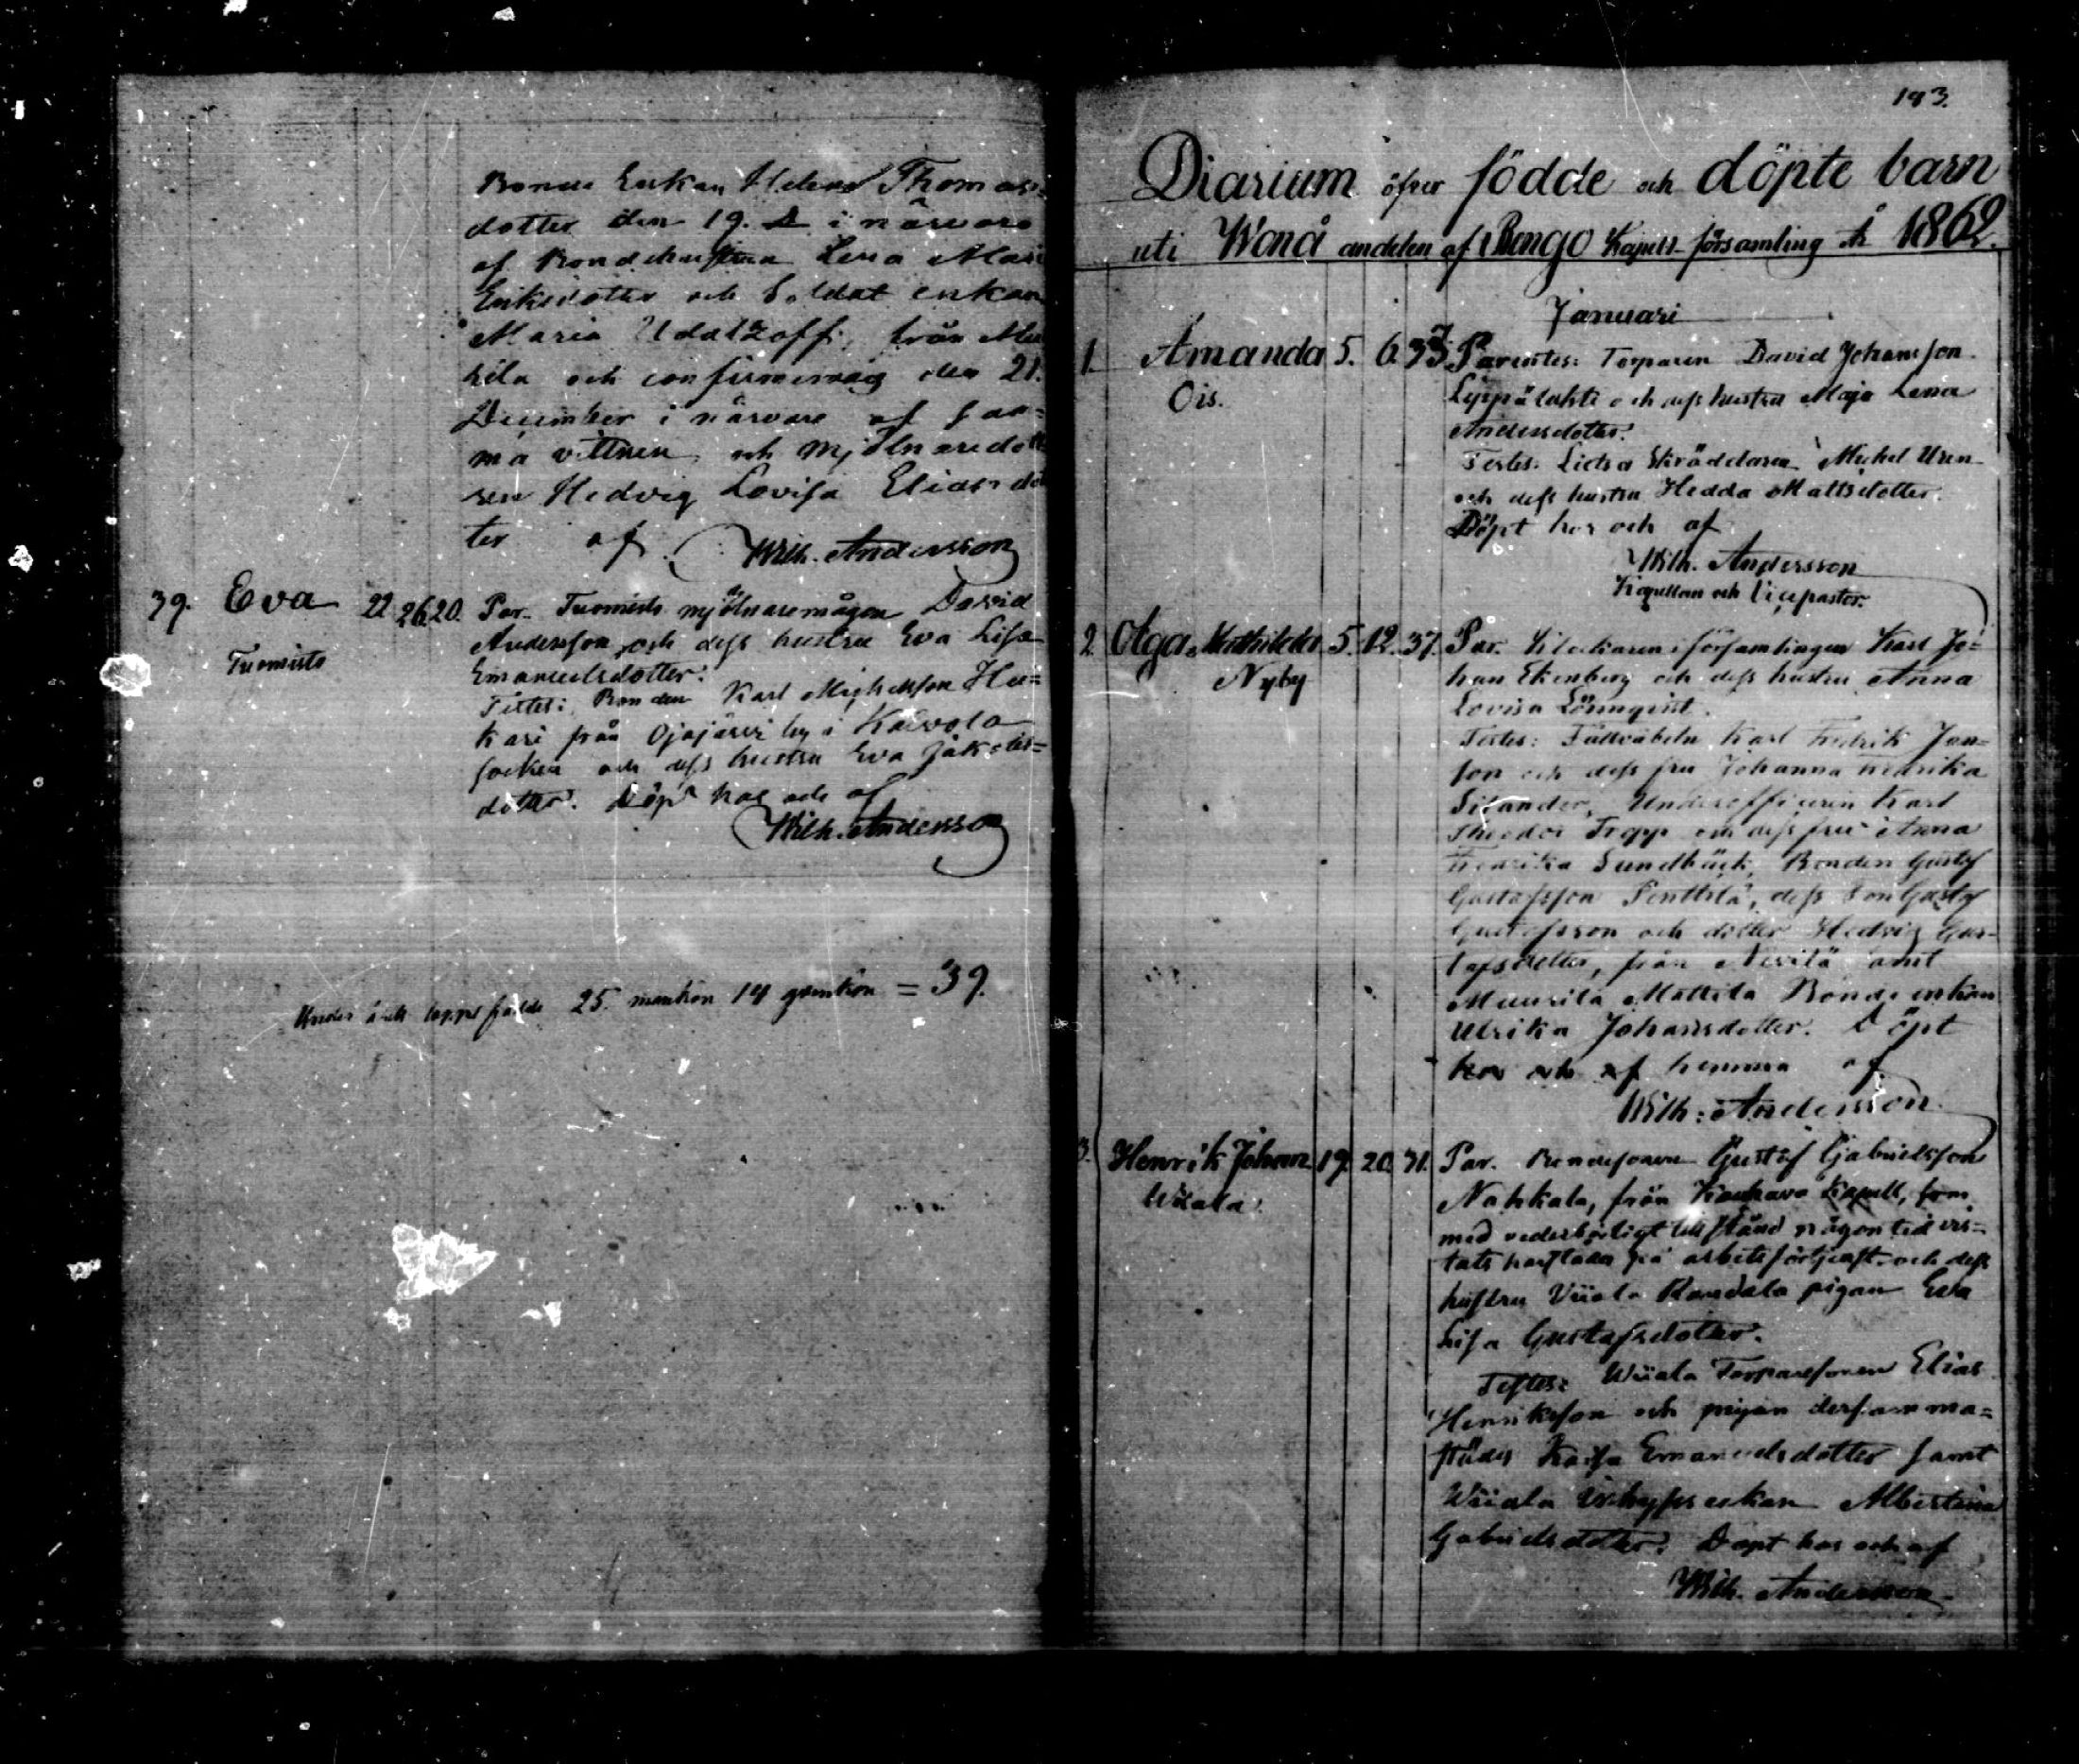 Bonde Enkan Helena Thomas=
dotter den 19. i närvaro
af Bondehustrun Lena Maria
Eriksdotter och Soldat enkan
Maria Udaltzoff, från
kila och confirmerad den 21.
December i närvaro af sam=
ma vittnen och Mjölnaredott
ren Hedvig Lovisa Eliasdot
ter af Wilh. Andersson
39. Eva 22 26 20. Par. Tuomisto mjölnaremågen David
Andersson och dess hustru Eva Lisa
Tuomisto
Emanuelsdotter.
Testes: Bonden Karl Michelsson
kari från Ojajärvi by i Kalvola
socken och dess hustru Eva Jakobs=
dotter. Döpt hos och af
Wilh. Andersson
Under årets lopp födde 25 mankön 14 qvinkön = 39.
193.
Diarium öfver födde och döpte barn
uti Wånå andelen af Rengo Kapell-församling år 1862.
Januari
1. Amanda 5. 6. 33 Parentes: Torparen David Johansson
Ois. Leppälahti och dess hustru Maja Lena
Andersdotter.
Testes: Skräddaren Michel
och dess hustru Hedda Mattsdotter.
Döpt hos och af
Wilh. Andersson
Kapellan och Vicepastor.
2. Olga Mathilda 5. 12. 37. Par. Klockaren i församlingen Karl Jo=
Nyby han Ekenberg och dess hustru Anna
Lovisa Lönnqvist.
Testes: Fältväbeln Karl Fredrik Jan=
son och dess fru Johanna Fredrika
Underofficeren Karl
Theodor och dess fru Anna
Fredrika Sundbäck, Bonden Gustaf
Gustafsson Penttilä, dess son Gustaf
Gustafsson och dotter Hedvig Gus-
tafsdotter, från samt
Muurila Mattila Bonde enkan
Ulrika Johansdotter. Döpt
hos och af hemma af
Wilh. Andersson
3. Henrik Johan 19. 20. 31. Par. Bondesonen Gustaf Gabrielsson
Wiiala. Nahkala, från Kauhava Kapell, som
med vederbörligt tillstånd någon tid vis=
tats härstädes på arbetsförtjenst och dess
hustru Viiala pigan Eva
Lisa Gustafsdotter.
Testes: Wiiala Torparesonen Elias
Henriksson och pigan dersamma=
städes Kaisa Emanuelsdotter samt
Wiiala enkan Albertina
Gabrielsdotter. Döpt hos och af
Wilh. Andersson